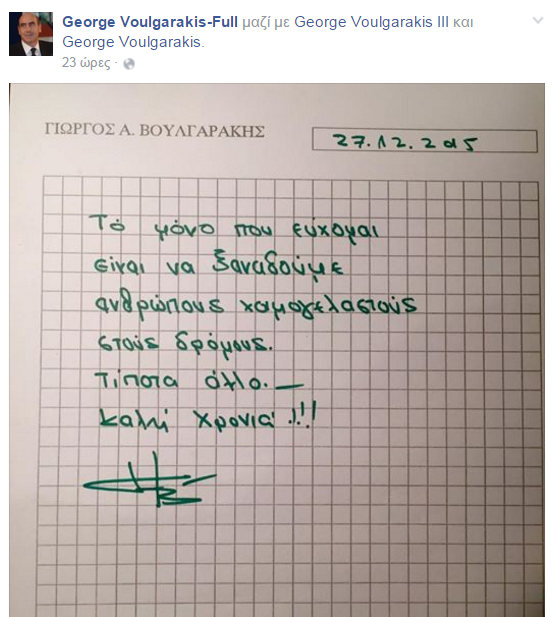 George Voulgarakis-Full μαζί με George Voulgarakis III και
George Voulgarakis.
23 ώρες ·
ΓΙΩΡΓΟΣ Α. ΒΟΥΛΓΑΡΑΚΗΣ
27.12.2015
Τό μόνο που εύχομαι
είναι να ξαναδούμε
ανθρώπους χαμογελαστούς
στούς δρόμους.
Τίποτα άλλο. —
Καλή χρονιά !!!